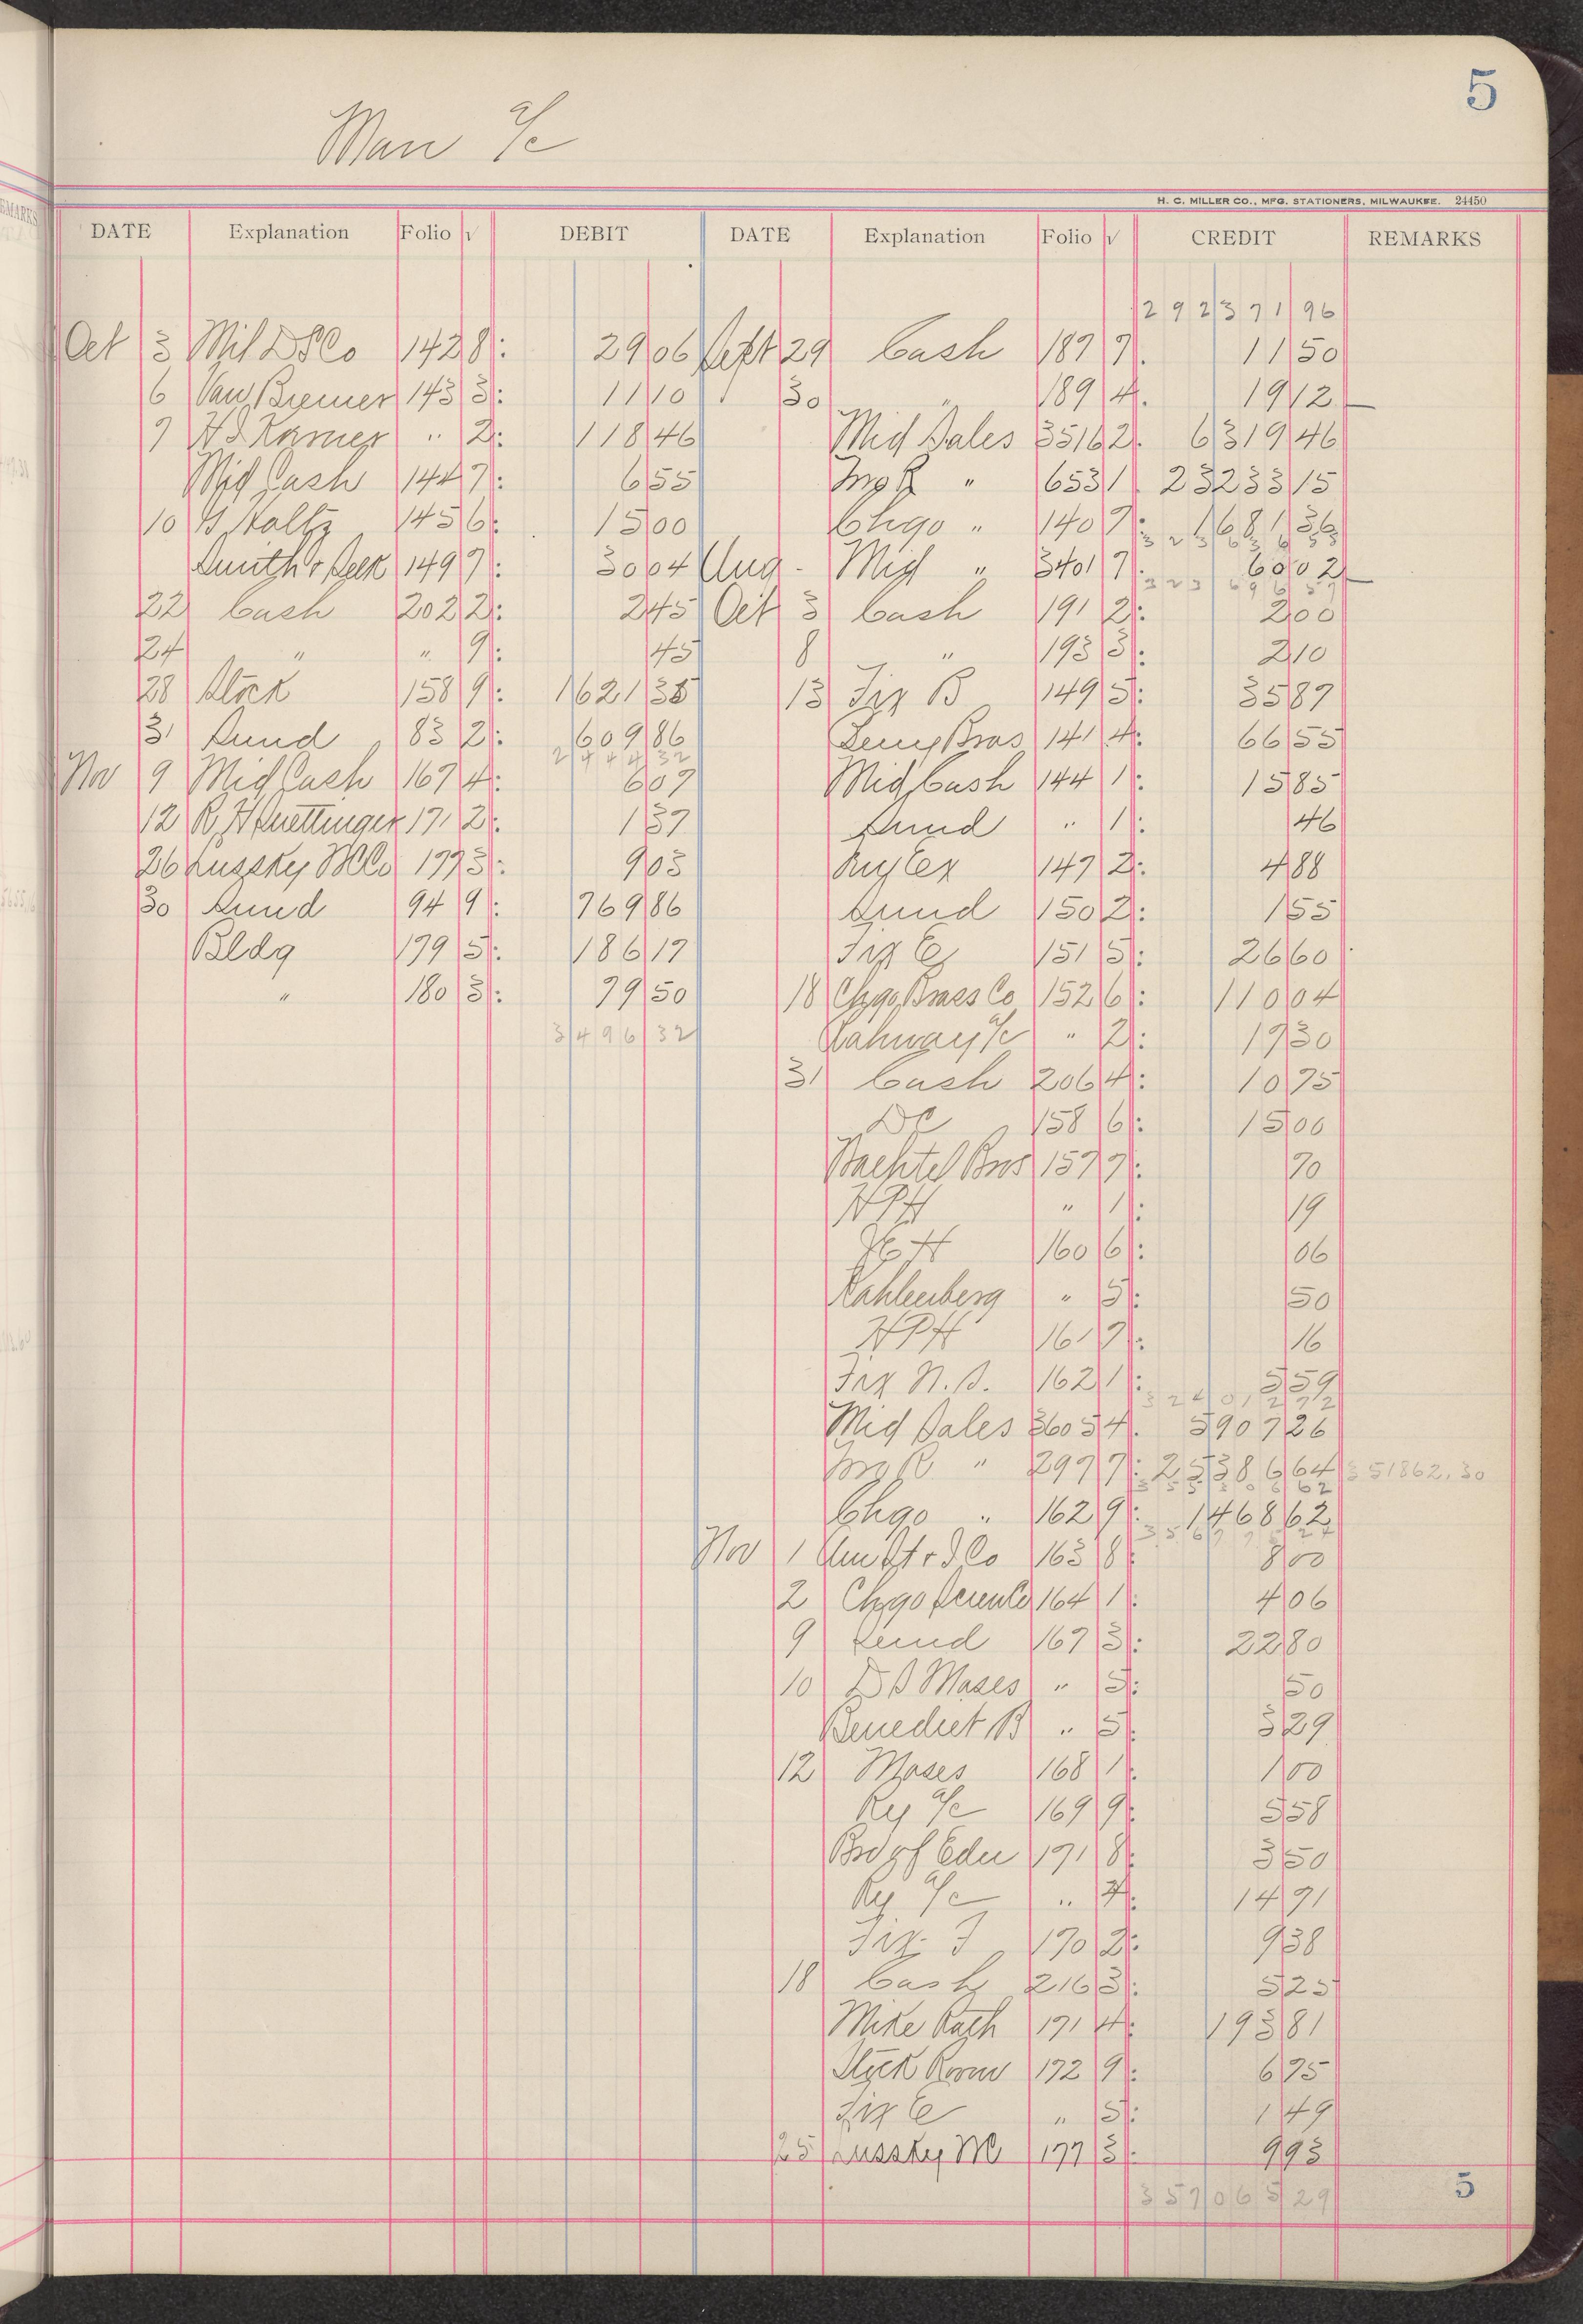 5
Man a/c
H. C. MILLER CO., MFG. STATIONERS, MILWAUKEE. 24450
DATE Explanation Folio √ DEBIT DATE Explanation Folio √ CREDIT REMARKS
292371 96
Oct 3 Mil D S Co 142 8 29 06 Sept 29 Cash 189 7 11 50
6 Van Bremer 143 3 11 10 30 " 189 4 19 12
7 H S Karner " 2 118 46 Mid Sales 3516 2 6319 46
Mid Cash 144 7 6 55 " 653 1 23233 15
10 Holtz 145 6 15 00 Chgo " 140 7 1681 36
Smith & 149 7 30 04 Aug - Mid " 3401 7 60 02
22 Cash 202 2 2 45 Oct 3 Cash 191 2 2 00
24 " " 9 45 8 " 193 3 2 10
28 Stock 158 9 1621 35 13 Fix B 149 5 35 87
31 Sund 83 2 609 86 Bros 141 4 66 55
2444 32
Nov 9 Mid Cash 167 4 6 07 Mid Cash 144 1 15 85
12 R. H 171 2 1 37 Sund " 1 46
26 Lussky 177 3 9 03 Ry Ex 147 2 4 88
30 Sund 94 9 769 86 Sund 150 2 1 55
Bldg 179 5 186 17 Fix E 151 5 26 60
" 180 3 79 50 18 Chgo Brass Co 152 6 110 04
3496 32 a/c " 2 19 30
31 Cash 206 4 10 75
158 6 15 00
Wachtel Bros 157 7 70
H P H " 1 19
160 6 06
Kahlenberg " 5 50
H P H 161 7 16
Fix N. S. 162 1 5 59
Mid Sales 3605 4 5907 26
" 297 7 25386 64 351862.30
Chgo " 162 9 1468 62
Nov 1 Co 163 8 8 00
2 Chgo 164 1 4 06
9 Sund 167 3 22 80
10 D S Moses " 5 50
Benedict B " 5 3 29
12 Moses 168 1 1 00
Ry a/c 169 9 5 58
Brd of Edu 171 8 3 50
Ry a/c " 4 14 91
Fix F 170 2 9 38
18 Cash 216 3 5 25
Mike 171 4 193 81
Stock Room 172 9 6 75
Fix E " 5 1 49
25 Lussky 177 3 9 93
357065 29 5